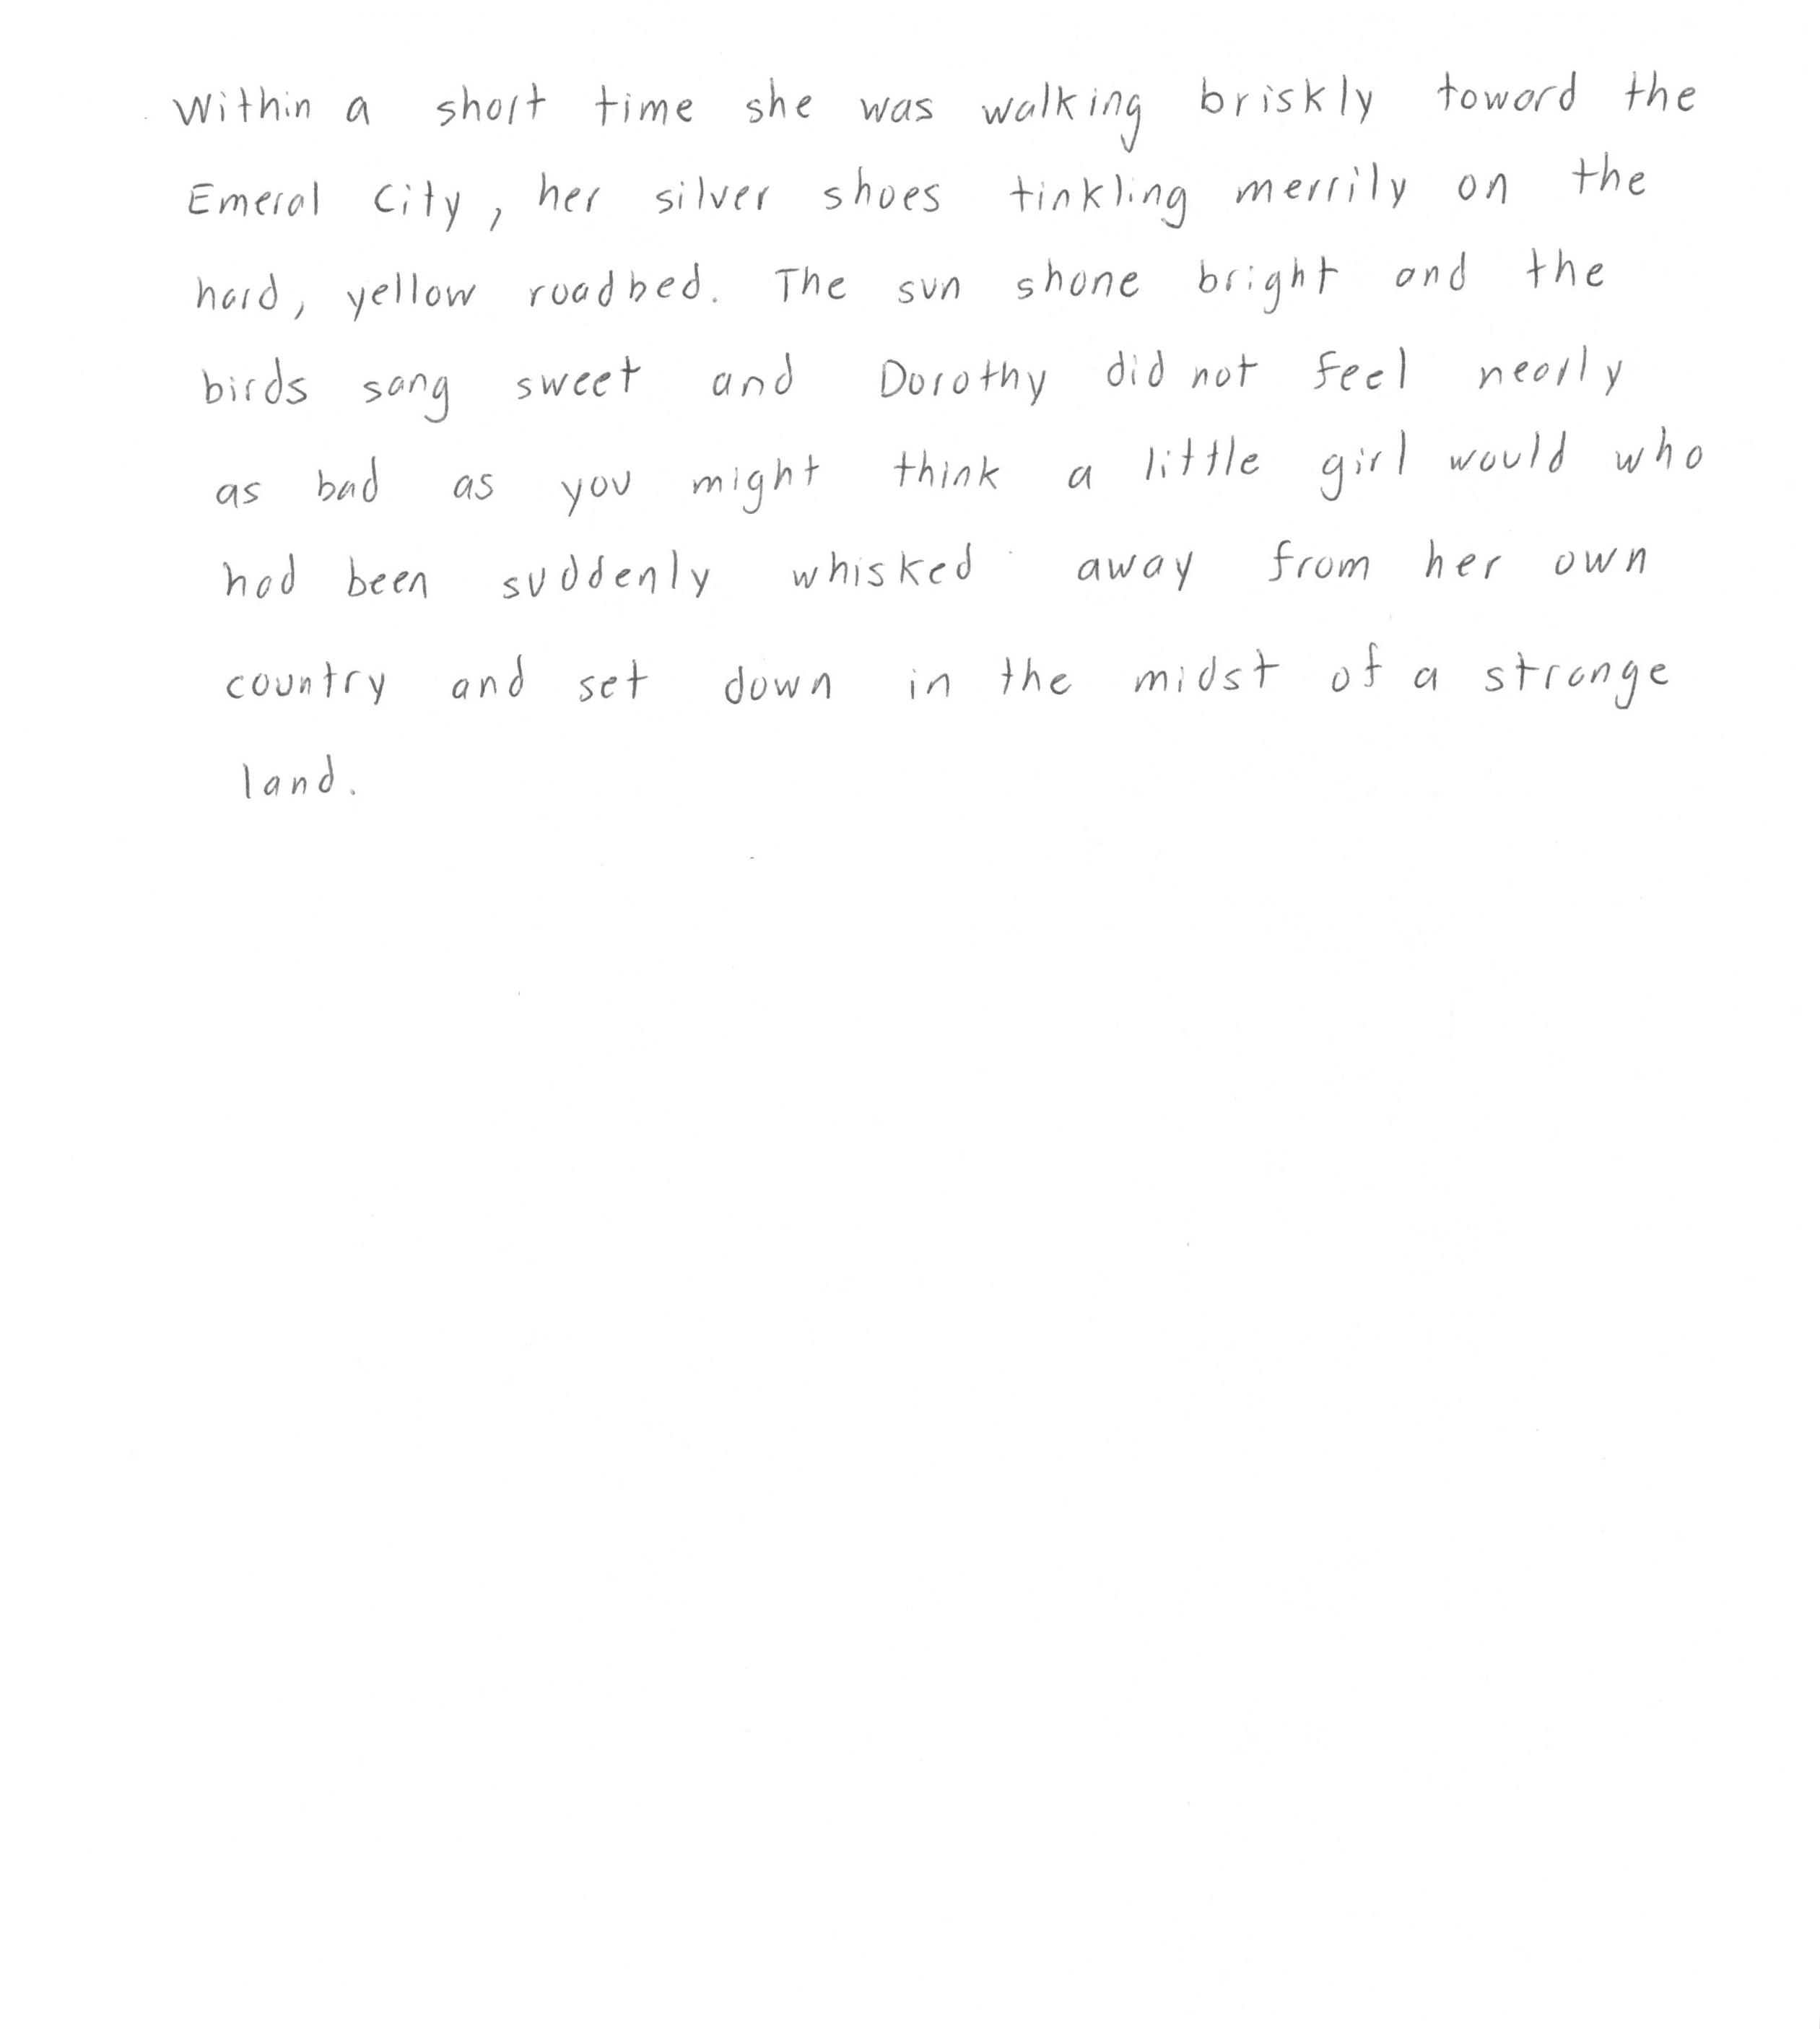 Within a short time she was walking briskly toward the
Emeral City, her silver shoes tinkling merrily on the
hard, yellow roadbed. The sun shone bright and the
birds sang sweet and Dorothy did not feel nearly
as bad as you might think a little girl would who
had been suddenly whisked away from her own
country and set down in the midst of a strange
land.